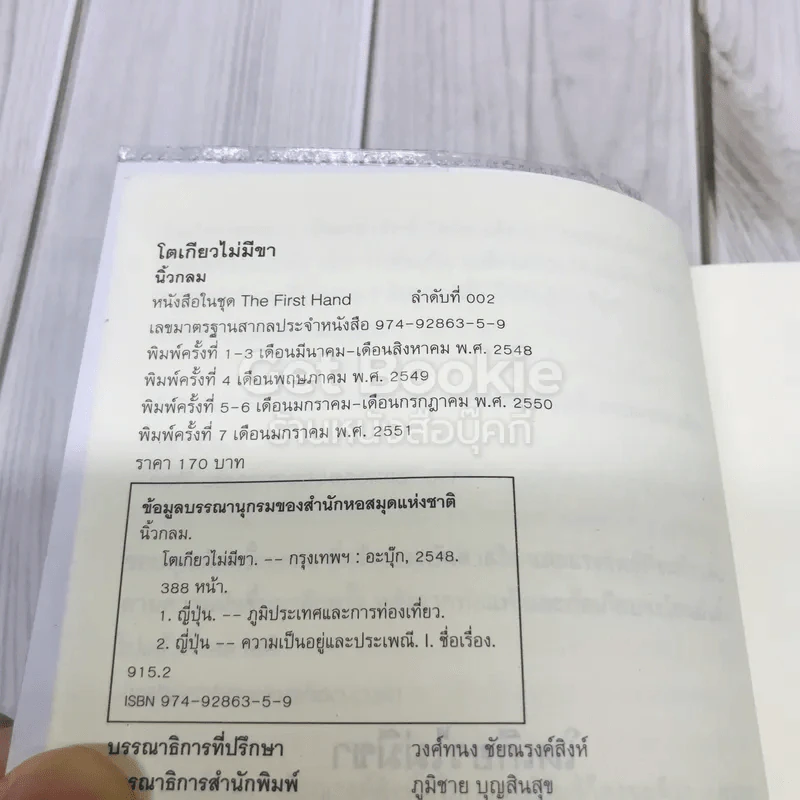 โตเกียวไม่มีขา
นิ้วกลม
หนังสือในชุด The First Hand ลำดับที่ 002
เลขมาตรฐานสากลประจำหนังสือ 974-92863-5-9
พิมพ์ครั้งที่ 1-3 เดือนมีนาคม-เดือนสิงหาคม พ.ศ. 2548
พิมพ์ครั้งที่ 4 เดือนพฤษภาคม พ.ศ. 2549
Got Bookie
พิมพ์ครั้งที่ 5-6 เดือนมกราคม-เดือนกรกฎาคม พ.ศ. 2550
ร้านหนังสือบุ๊คกี้
พิมพ์ครั้งที่ 7 เดือนมกราคม พ.ศ. 2551
ราคา 170 บาท
ข้อมูลบรรณานุกรมของสำนักหอสมุดแห่งชาติ
นิ้วกลม.
โตเกียวไม่มีขา. -- กรุงเทพฯ : อะบุ๊ก, 2548.
388 หน้า.
1. ญี่ปุ่น. -- ภูมิประเทศและการท่องเที่ยว.
2. ญี่ปุ่น -- ความเป็นอยู่และประเพณี. I. ชื่อเรื่อง.
915.2
ISBN 974-92863-5-9
บรรณาธิการที่ปรึกษา วงศ์ทนง ชัยณรงค์สิงห์
รรณาธิการสำนักพิมพ์ ภูมิชาย บุญสินสุข